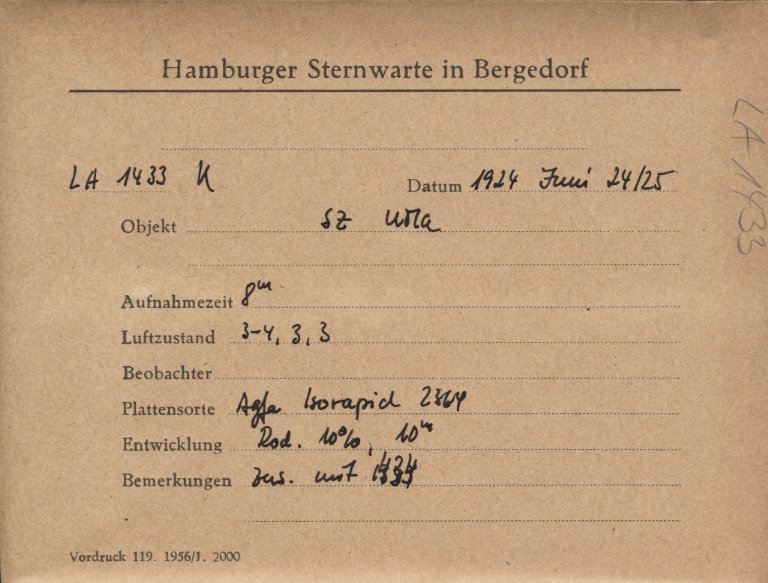 Hamburger Sternwarte in Bergedorf
LA 1433 K
Datum 1924 Juni 24/25
Objekt SZ UMa
Aufnahmezeit 8m
Luftzustand 3-4, 3, 3
Beobachter
Plattensorte Agfa Isorapid 2364
Entwicklung Rod. 10%, 10m
Bemerkungen zus. mit
Vordruck 119. 1956/1. 2000
LA 1433